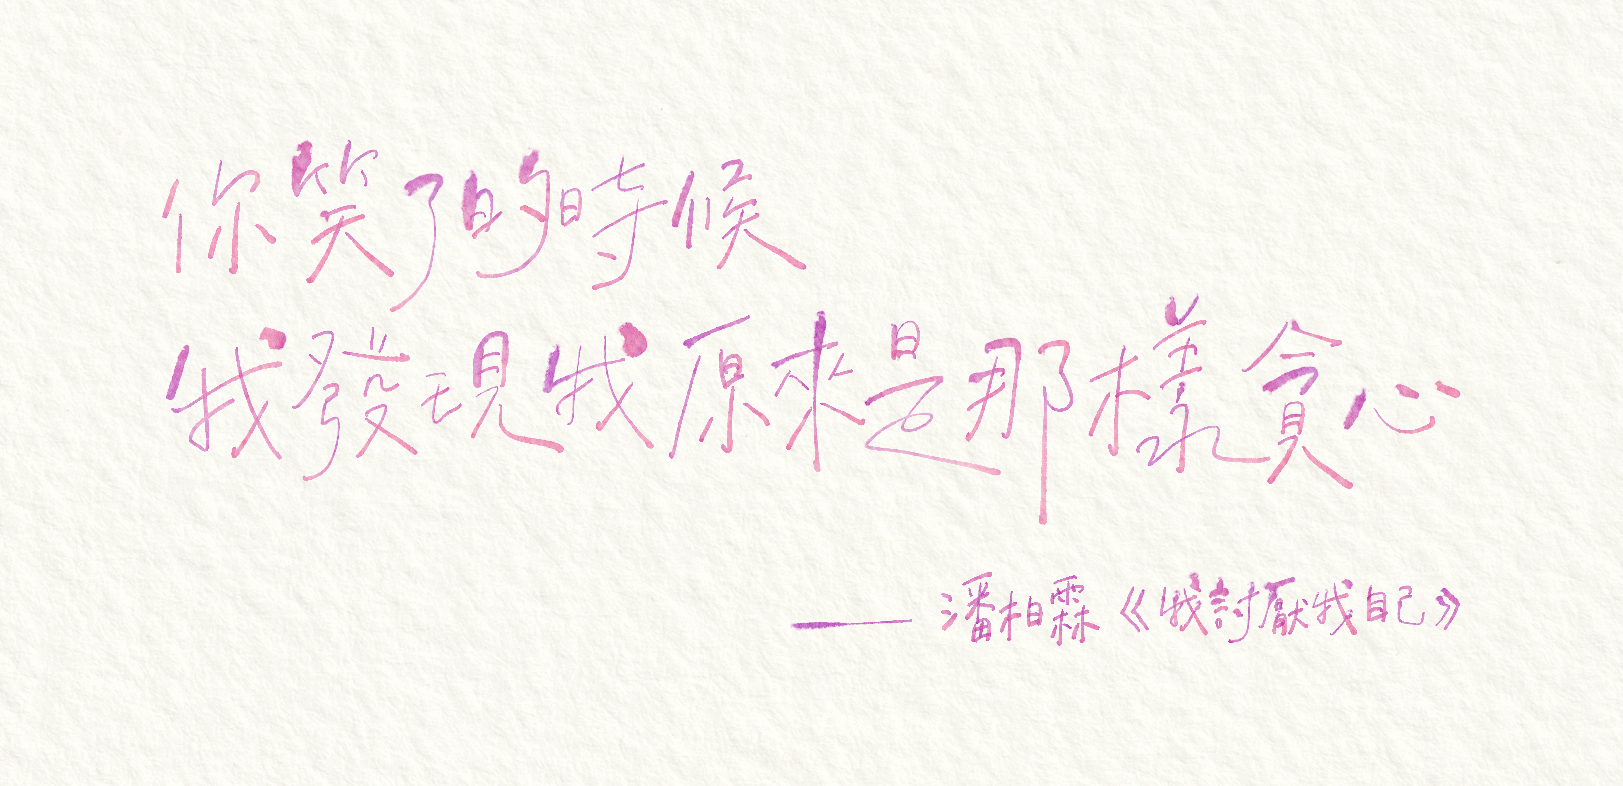 你笑了的時候
我發現我原來是那樣貪心
——潘柏霖《我討厭我自己》